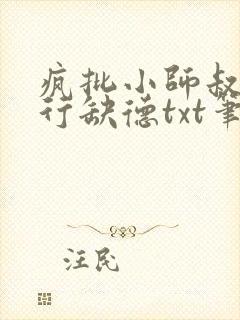 疯批小师叔
行缺德txt筆
汪民